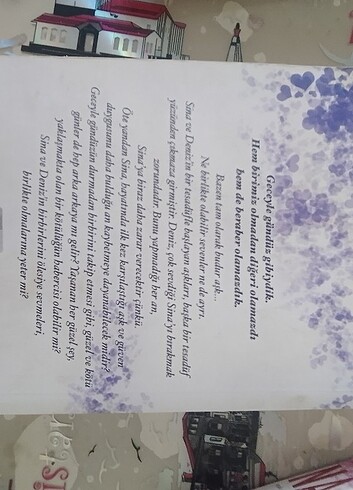 Geceyle gündüz gibiydik.
Hem birimiz olmadan diğeri olamazdı
hem de beraber olamazdık.
Bazen tam olarak budur aşk...
Ne birlikte olabilir sevenler ne de ayrı.
Sına ve Deniz'in bir tesadüfle başlayan aşkları, başka bir tesadüf
yüzünden çıkmaza girmiştir. Deniz, çok sevdiği Sına'yı bırakmak
zorundadır. Bunu yapmadığı her an,
Sina'ya biraz daha zarar verecektir çünkü.
Öte yandan Sina, hayatında ilk kez karşılaştığı aşk ve güven
duygusunu daha bulduğu an kaybetmeye dayanabilecek midir?
Geceyle gündüzün durmadan birbirini takip etmesi gibi, güzel ve kötü
günler de hep arka arkaya mı gelir? Yaşanan her güzel şey,
yaklaşmakta olan bir kötülüğün habercisi olabilir mi?
Sina ve Deniz'in birbirlerini ölesiye sevmeleri,
birlikte olmalarına yeter mi?